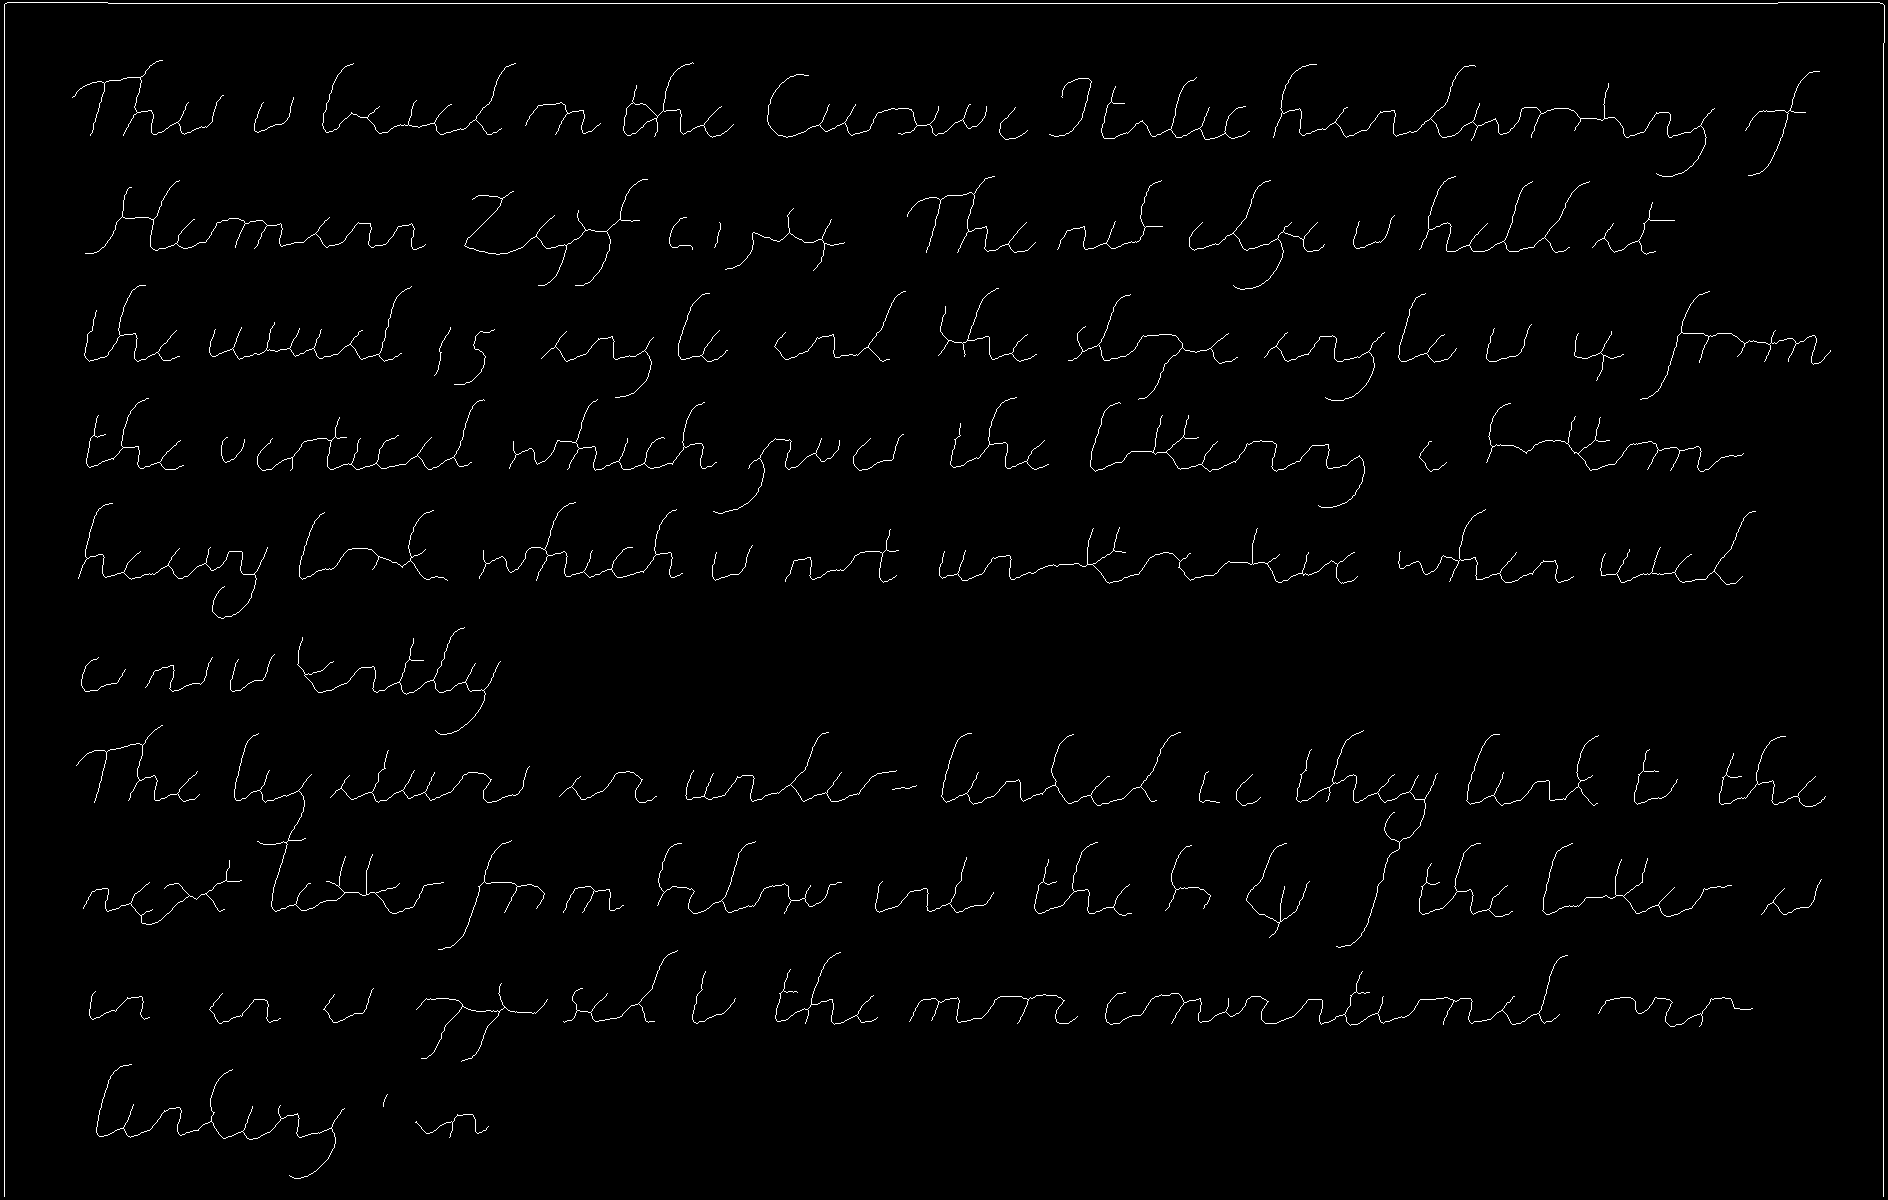 This is based on the Cursive Italic handwriting of
Hermann Zapf c 1964 The nib edge is held at
the usual 15 angle and the slope angle is 4 from
the vertical which gives the lettering a bottom
heavy look which is not unattractive when used
consistently
The ligatures are under-linked ie they link to the
next letter from below into the body of the letter as
in an as opposed to the more conventional over
linking